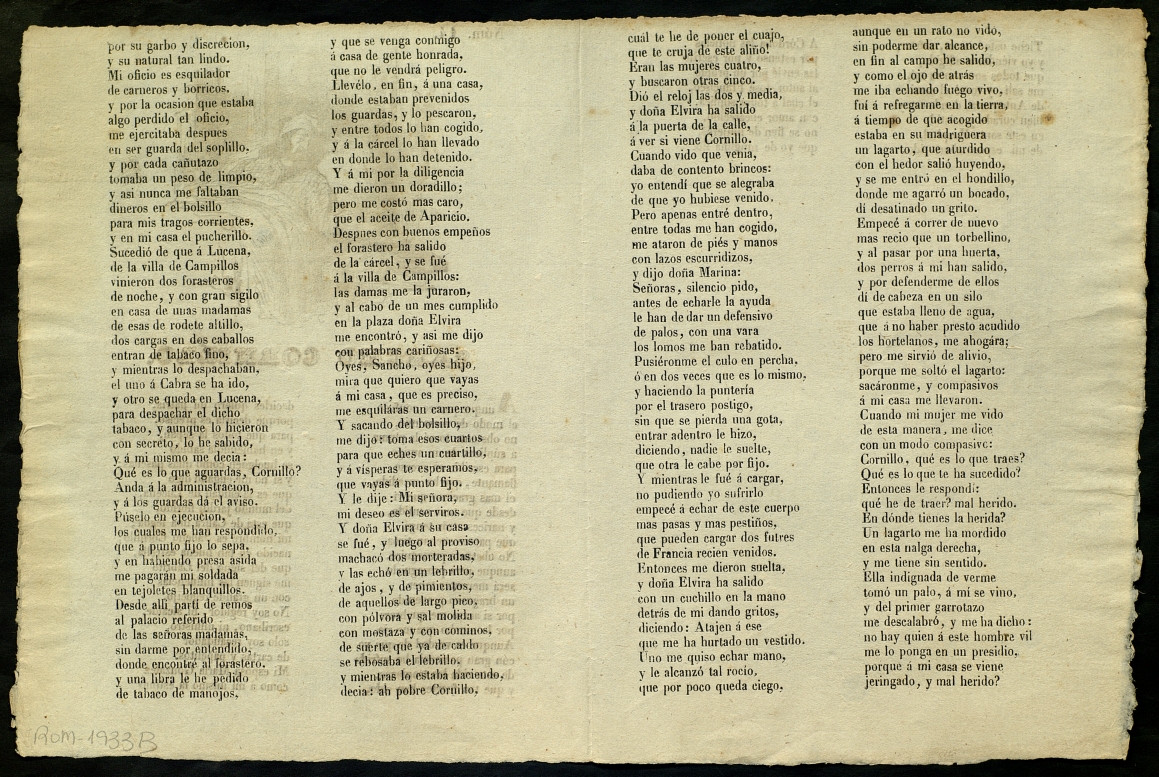 por su garbo y discrecion,
y su natural tan lindo.
Mi oficio es esquilador
de carneros y borricos,
y por la ocasion que estaba
algo perdido el oficio,
me ejercitaba despues
en ser guarda del soplillo,
y por cada cañutazo
tomaba un peso de limpio,
y asi nunca me faltaban
dineros en el bolsillo
para mis tragos corrientes,
y en mi casa el pucherillo.
Sucedió de que á Lucena,
de la villa de Campillos
vinieron dos forasteros
de noche, y con gran sigilo
en casa de unas madamas
de esas de rodete altillo,
dos cargas en dos caballos
entran de tabaco fino,
y mientras lo despachaban,
el uno á Cabra se ha ido,
y otro se queda en Lucena,
para despachar el dicho
tabaco, y aunque lo hicieron
con secreto, lo he sabido,
y á mi mismo me decia:
Qué es lo que aguardas, Cornillo?
Anda á la administracion,
y á los guardas dá el aviso.
Púselo en ejecucion,
los cuales me han respondido,
que á punto fijo lo sepa,
y en habiendo presa asida
me pagarán mi soldada
en tejoletes blanquillos.
Desde allí partí de remos
al palacio referido
de las señoras madamas,
sin darme por entendido,
donde encontré al forastero.
y una libra le he pedido
de tabaco de manojos,
y que se venga conmigo
á casa de gente honrada,
que no le vendrá peligro.
Llevélo, en fin, á una casa,
donde estaban prevenidos
los guardas, y lo pescaron,
y entre todos lo han cogido,
y á la cárcel lo han llevado
en donde lo han detenido.
Y á mi por la diligencia
me dieron un doradillo;
pero me costó mas caro,
que el aceite de Aparicio.
Despues con buenos empeños
el forastero ha salido
de la cárcel, y se fué
á la villa de Campillos:
las damas me la juraron,
y al cabo de un mes cumplido
en la plaza doña Elvira
me encontró, y asi me dijo
con palabras cariñosas:
Oyes, Sancho, oyes hijo,
mira que quiero que vayas
á mi casa, que es preciso,
me esquilaras un carnero.
Y sacando del bolsillo,
me dijo: toma esos cuartos
para que eches un cuartillo,
y á vísperas te esperamos,
que vayas á punto fijo.
Y le dije: Mi señora,
mi deseo es el serviros.
Y doña Elvira á su casa
se fué, y luego al proviso
machacó dos morteradas,
y las echó en un lebrillo,
de ajos, y de pimientos,
de aquellos de largo pico,
con pólvora y sal molida
con mostaza y con cominos,
de suerte que ya de caldo
se rebosaba el lebrillo.
y mientras lo estaba haciendo,
decia: ah pobre Cornillo,
cuál te he de poner el cuajo,
que te cruja de este aliño!
Eran las mujeres cuatro,
y buscaron otras cinco.
Dió el reloj las dos y media,
y doña Elvira ha salido
á la puerta de la calle,
á ver si viene Cornillo.
Cuando vido que venia,
daba de contento brincos:
yo entendí que se alegraba
de que yo hubiese venido.
Pero apenas entré dentro,
entre todas me han cogido,
me ataron de piés y manos
con lazos escurridizos,
y dijo doña Marina:
Señoras, silencio pido,
antes de echarle la ayuda
le han de dar un defensivo
de palos, con una vara
los lomos me han rebatido.
Pusiéronme el culo en percha,
ó en dos veces que es lo mismo,
y haciendo la puntería
por el trasero postigo,
sin que se pierda una gota,
entrar adentro le hizo,
diciendo, nadie le suelte,
que otra le cabe por fijo.
Y mientras le fué á cargar,
no pudiendo yo sufrirlo
empecé á echar de este cuerpo
mas pasas y mas pestiños,
que pueden cargar dos futres
de Francia recien venidos.
Entonces me dieron suelta,
y doña Elvira ha salido
con un cuchillo en la mano
detrás de mi dando gritos,
diciendo: Atajen á ese
que me ha hurtado un vestido.
Uno me quiso echar mano,
y le alcanzó tal rocío,
que por poco queda ciego,
aunque en un rato no vido,
sin poderme dar alcance,
en fin al campo he salido,
y como el ojo de atrás
me iba echando fuego vivo,
fuí á refregarme en la tierra,
á tiempo de que acogido
estaba en su madriguera
un lagarto, que aturdido
con el hedor salió huyendo,
y se me entró en el hondillo,
donde me agarró un bocado,
dí desatinado un grito.
Empecé á correr de nuevo
mas recio que un torbellino,
y al pasar por una huerta,
dos perros á mi han salido,
y por defenderme de ellos
dí de cabeza en un silo
que estaba lleno de agua,
que á no haber presto acudido
los hortelanos, me ahogára;
pero me sirvió de alivio,
porque me soltó el lagarto:
sacáronme, y compasivos
á mi casa me llevaron.
Cuando mi mujer me vido
de esta manera, me dice
con un modo compasivo:
Cornillo, qué es lo que traes?
Qué es lo que te ha sucedido?
Entonces le respondí:
qué he de traer? mal herido.
En dónde tienes la herida?
Un lagarto me ha mordido
en esta nalga derecha,
y me tiene sin sentido.
Ella indignada de verme
tomó un palo, á mi se vino,
y del primer garrotazo
me descalabró, y me ha dicho:
no hay quien á este hombre vil
me lo ponga en un presidio,
porque á mi casa se viene
jeringado, y mal herido?
ROM-1933B